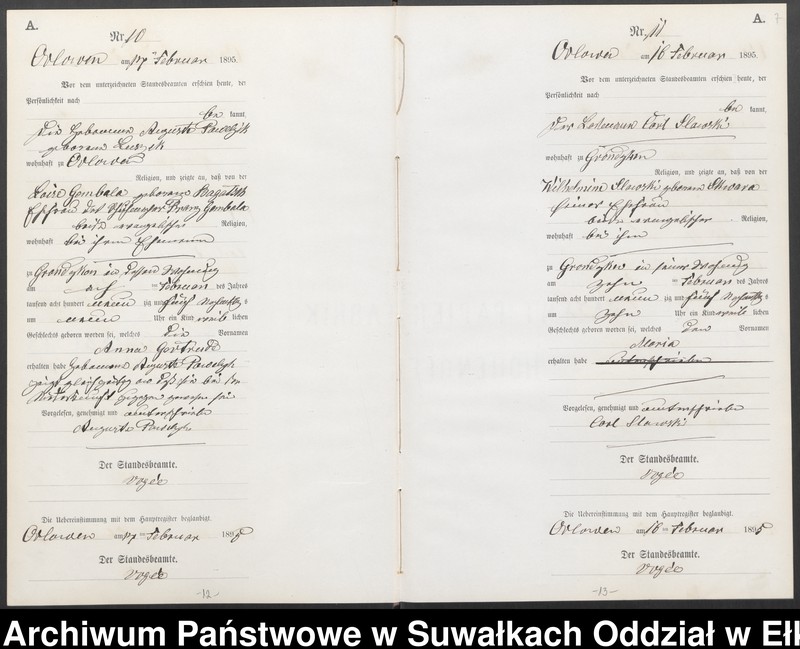 A.
Nr. 10
Orlowen am ten Februar 1895.
Vor dem unterzeichneten Standesbeamten erschien heute, der
Persönlichkeit nach
be kannt,
die Hebamme Auguste
geborene
wohnhaft zu Orlowen
Religion, und zeigte an, daß von der
Loise Gembala geborene
Ehefrau des Franz Gembala
beide evangelischer Religion,
wohnhaft bei ihrem Ehemann
zu Grondzken in dessen Wohnung
am ten Februar des Jahres
tausend acht hundert neun zig und fünf Nachmittags
um neun Uhr ein Kind weib lichen
Geschlechts geboren worden sei, welches die Vornamen
Anna Gertrude
erhalten habe Hebamme Auguste
zeigt gleichzeitig an daß sie bei der
Niederkunft zugegen gewesen sei
Vorgelesen, genehmigt und unterschrieben
Auguste
Der Standesbeamte.
Die Uebereinstimmung mit dem Hauptregister beglaubigt.
Orlowen am ten Februar 1895
Der Standesbeamte.
-12-
A.
7
Nr. 11
Orlowen am 16 Februar 1895.
Vor dem unterzeichneten Standesbeamten erschien heute, der
Persönlichkeit nach
be kannt,
der Losmann Carl Slawski
wohnhaft zu Grondzken
Religion, und zeigte an, daß von der
Wilhelmine Slawski geborene Skwara
seiner Ehefrau
beide evangelischer Religion,
wohnhaft bei ihm
zu Grondzken in seiner Wohnung
am zehn ten Februar des Jahres
tausend acht hundert neun zig und fünf Nachmittags
um zehn Uhr ein Kind weib lichen
Geschlechts geboren worden sei, welches den Vornamen
Maria
erhalten habe
Vorgelesen, genehmigt und unterschrieben
Carl Slawski
Der Standesbeamte.
Die Uebereinstimmung mit dem Hauptregister beglaubigt.
Orlowen am 16 ten Februar 1895
Der Standesbeamte.
-13-
Archiwum Państwowe w Suwałkach Oddział w Ełk